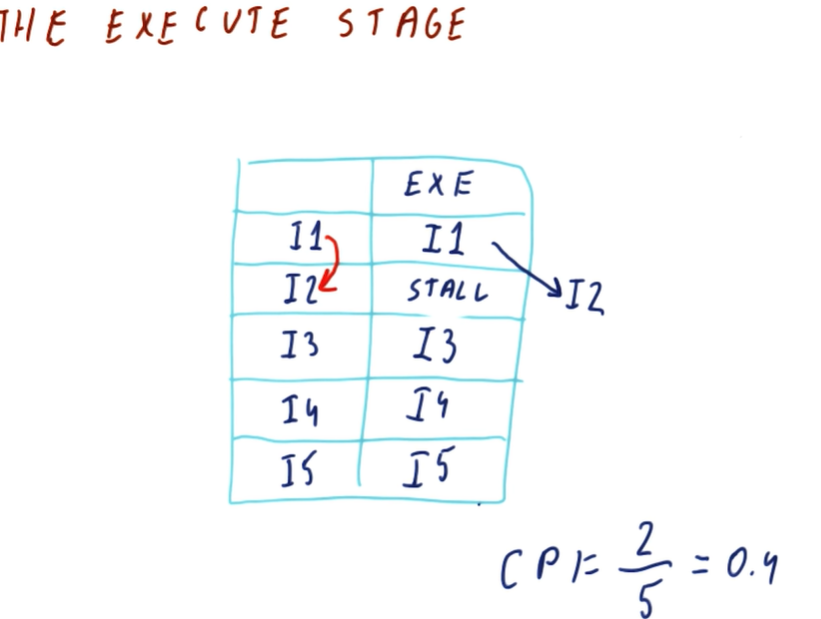 THE EXECUTE STAGE
EXE
I1 I1
I2 STALL I2
I3 I3
I4 I4
I5 I5
CPI = 2/5 = 0.4